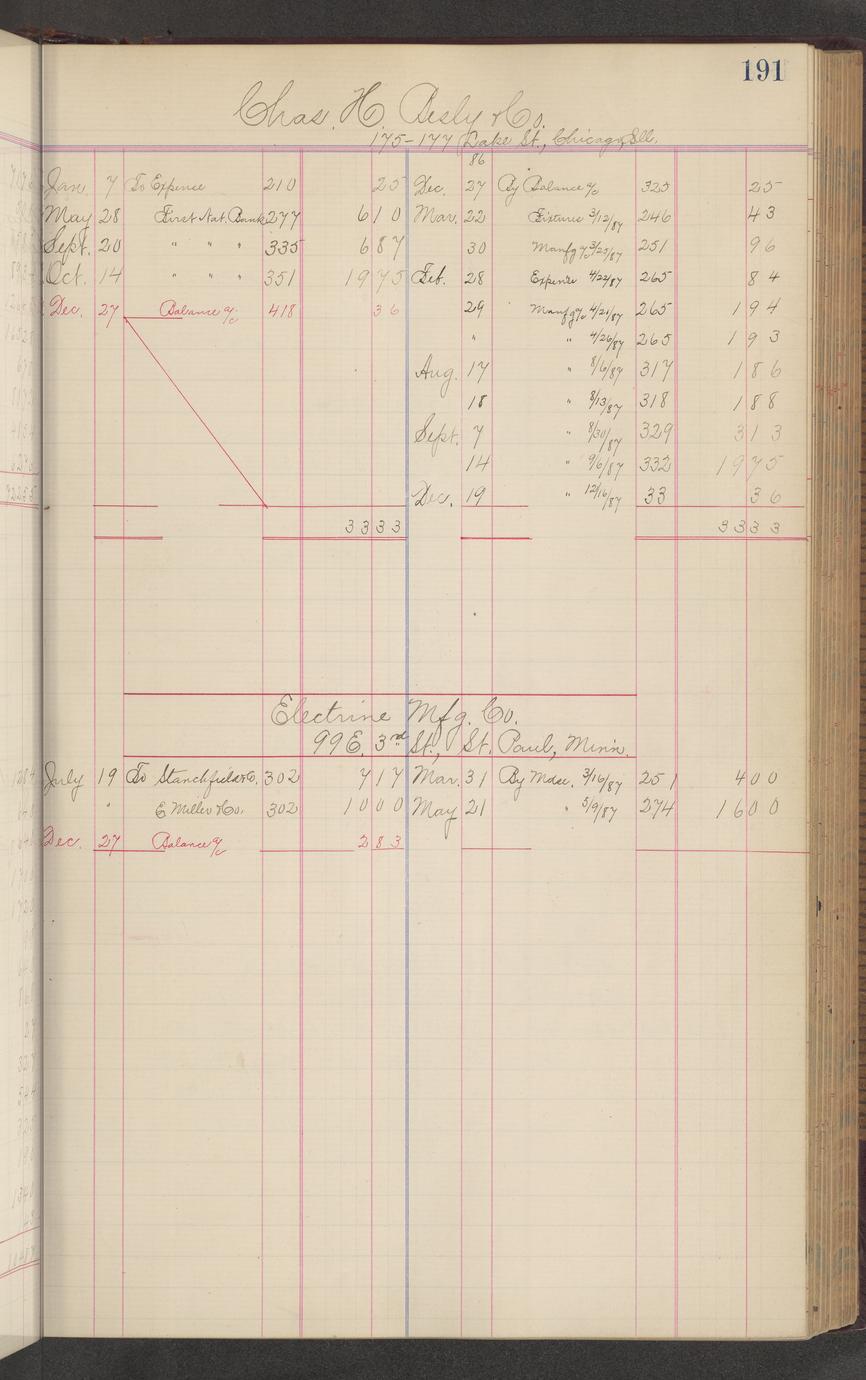 191
Chas. H. Besly & Co.
175-177 Lake St., Chicago, Ill.
86
Jan. 7 To Expense 210 25 Dec. 27 By Balance a/c 325 25
May 28 First Nat. Bank 277 610 Mar. 22 Fixtures 3/12/87 246 43
Sept. 20 " " " 335 687 30 Manfg a/c 3/25/87 251 96
Oct. 14 " " " 351 1975 Feb. 28 Expense 4/22/87 265 84
Dec. 27 Balance a/c 418 36 29 Manfg a/c 4/21/87 265 194
" " 4/26/87 265 193
Aug. 17 " 8/6/87 317 186
18 " 8/13/87 318 188
Sept. 7 " 8/30/87 329 313
14 " 9/6/87 332 1975
Dec. 19 " 12/16/87 33 36
3333 3333
Electrine Mfg. Co.
99 E. 3rd St., St. Paul, Minn.
July 19 To Stanchfield & Co. 302 717 Mar. 31 By Mdse. 3/16/87 251 400
" E Miller & Co. 302 1000 May 21 " 5/9/87 274 1600
Dec. 27 Balance a/c 283